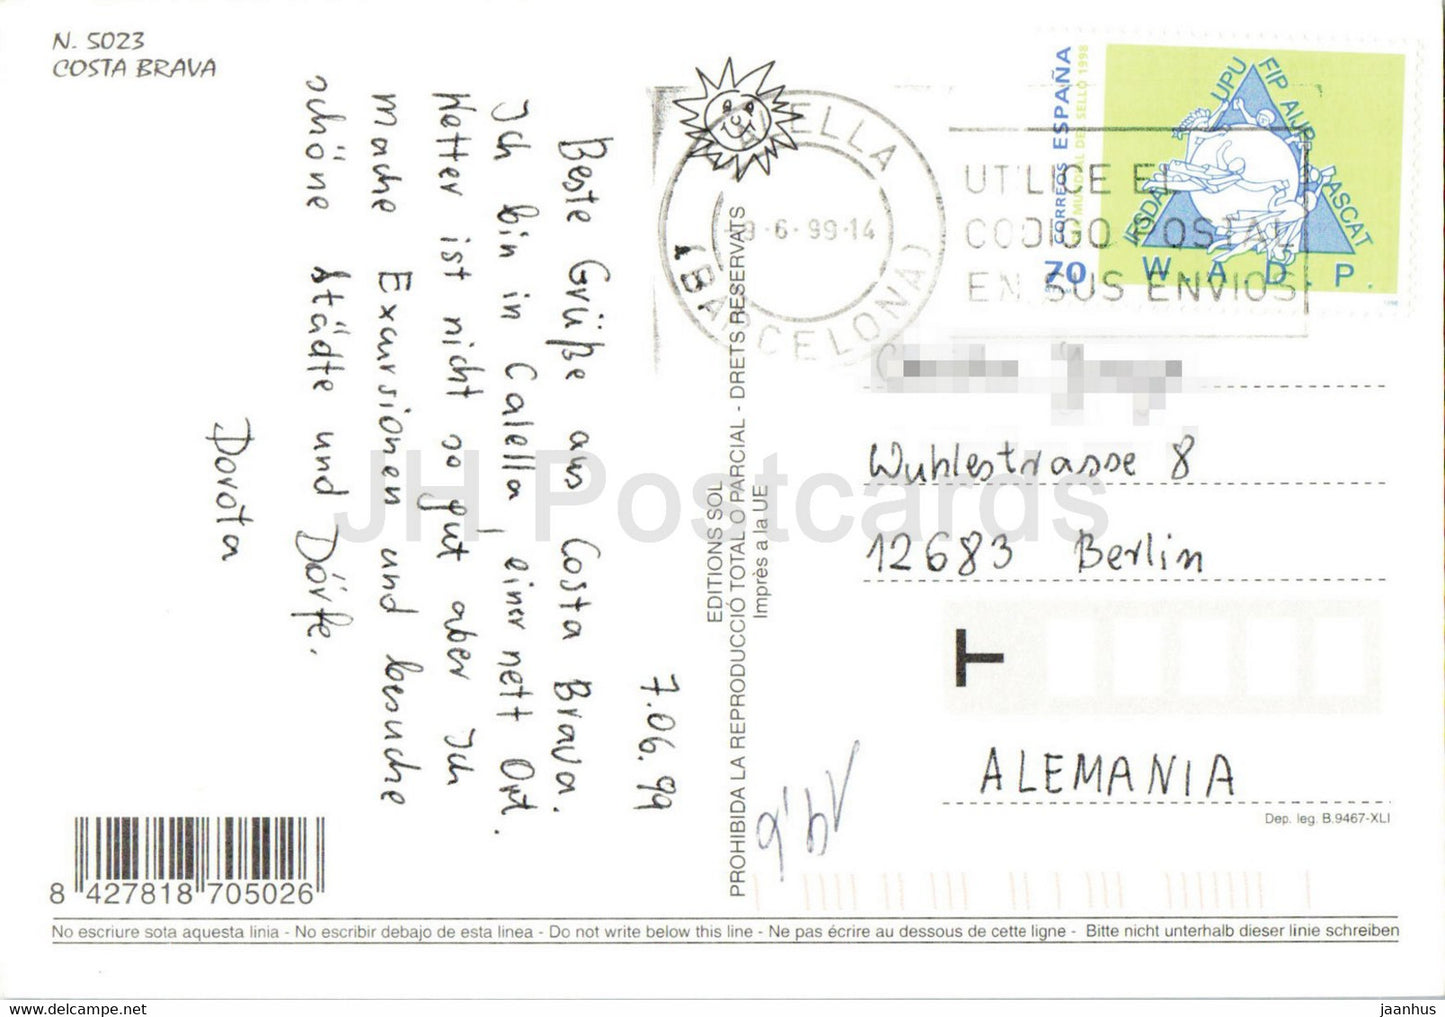 N. 5023
COSTA BRAVA
7.06.99
Beste Grüße aus Costa Brava.
Ich bin in Calella, einer nett Ort.
Wetter ist nicht so gut aber Ich
mache Excursionen und besuche
schöne Städte und Dörfe.
Dorota
8 427818 705026
EDITIONS SOL
PROHIBIDA LA REPRODUCCIÓ TOTAL O PARCIAL - DRETS RESERVATS
Imprès a la UE
ELLA
9-6-99-14
(BARCELONA)
UTILICE EL
CODIGO POSTAL
EN SUS ENVIOS
CORREOS ESPAÑA
DIA MUNDIAL DEL SELLO 1998
70
UPU FIP AIJP ASCAT IFSDA
W.A.D.P.
Wuhlestrasse 8
12683 Berlin
T
ALEMANIA
Dep. leg. B.9467-XLI
No escriure sota aquesta linia - No escribir debajo de esta linea - Do not write below this line - Ne pas écrire au dessous de cette ligne - Bitte nicht unterhalb dieser linie schreiben
JH Postcards
https://www.delcampe.net
jaanhus